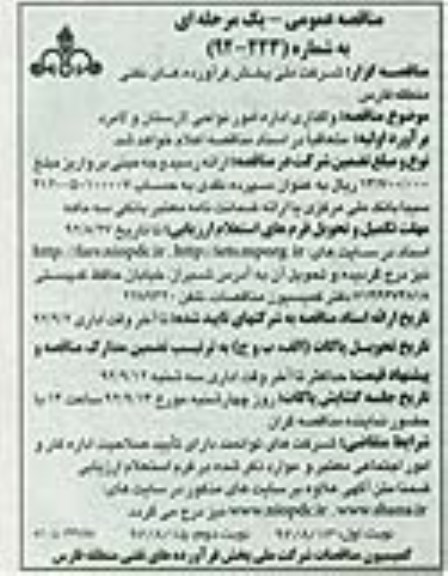 مناقصه عمومی - یک مرحله ای
به شماره (۲۲۳-۹۲)
مناقصه گزار: شرکت ملی پخش فرآورده های نفتی
منطقه فارس
موضوع مناقصه: واگذاری اداره امور نواحی لارستان و لامرد
برآورد اولیه: متعاقباً در اسناد مناقصه اعلام خواهد شد
نوع و مبلغ تضمین شرکت در مناقصه: ارائه رسید وجه مبنی بر واریز مبلغ
ریال به عنوان سپرده نقدی به حساب
سیبا بانک ملی مرکزی یا ارائه ضمانت نامه معتبر بانکی سه ماهه
مهلت تکمیل و تحویل فرم های استعلام ارزیابی: تا تاریخ ۹۲/۸/۲۷
اسناد در سایت های http://iets.mporg.ir , http://fars.niopdc.ir
نیز درج گردیده و تحویل آن به آدرس شیراز، خیابان حافظ
دفتر کمیسیون مناقصات، تلفن
تاریخ ارائه اسناد مناقصه به شرکتهای تایید شده: تا آخر وقت اداری
تاریخ تحویل پاکات (الف، ب و ج) به ترتیب تضمین، مدارک مناقصه و
پیشنهاد قیمت: حداکثر تا آخر وقت اداری سه شنبه ۹۲/۹/۱۲
تاریخ جلسه گشایش پاکات: روز چهارشنبه مورخ ۹۲/۹/۱۳ ساعت ۱۴ با
حضور نماینده مناقصه گران
شرایط متقاضی: شرکت های توانمند دارای تأیید صلاحیت اداره کار و
امور اجتماعی معتبر و موارد ذکر شده در فرم استعلام ارزیابی
ضمناً متن آگهی علاوه بر سایت های مذکور در سایت های:
www.shana.ir , www.niopdc.ir نیز درج می گردد.
نوبت اول: ۹۲/۸/۱۳ نوبت دوم: ۹۲/۸/۱۵
کمیسیون مناقصات شرکت ملی پخش فرآورده های نفتی منطقه فارس